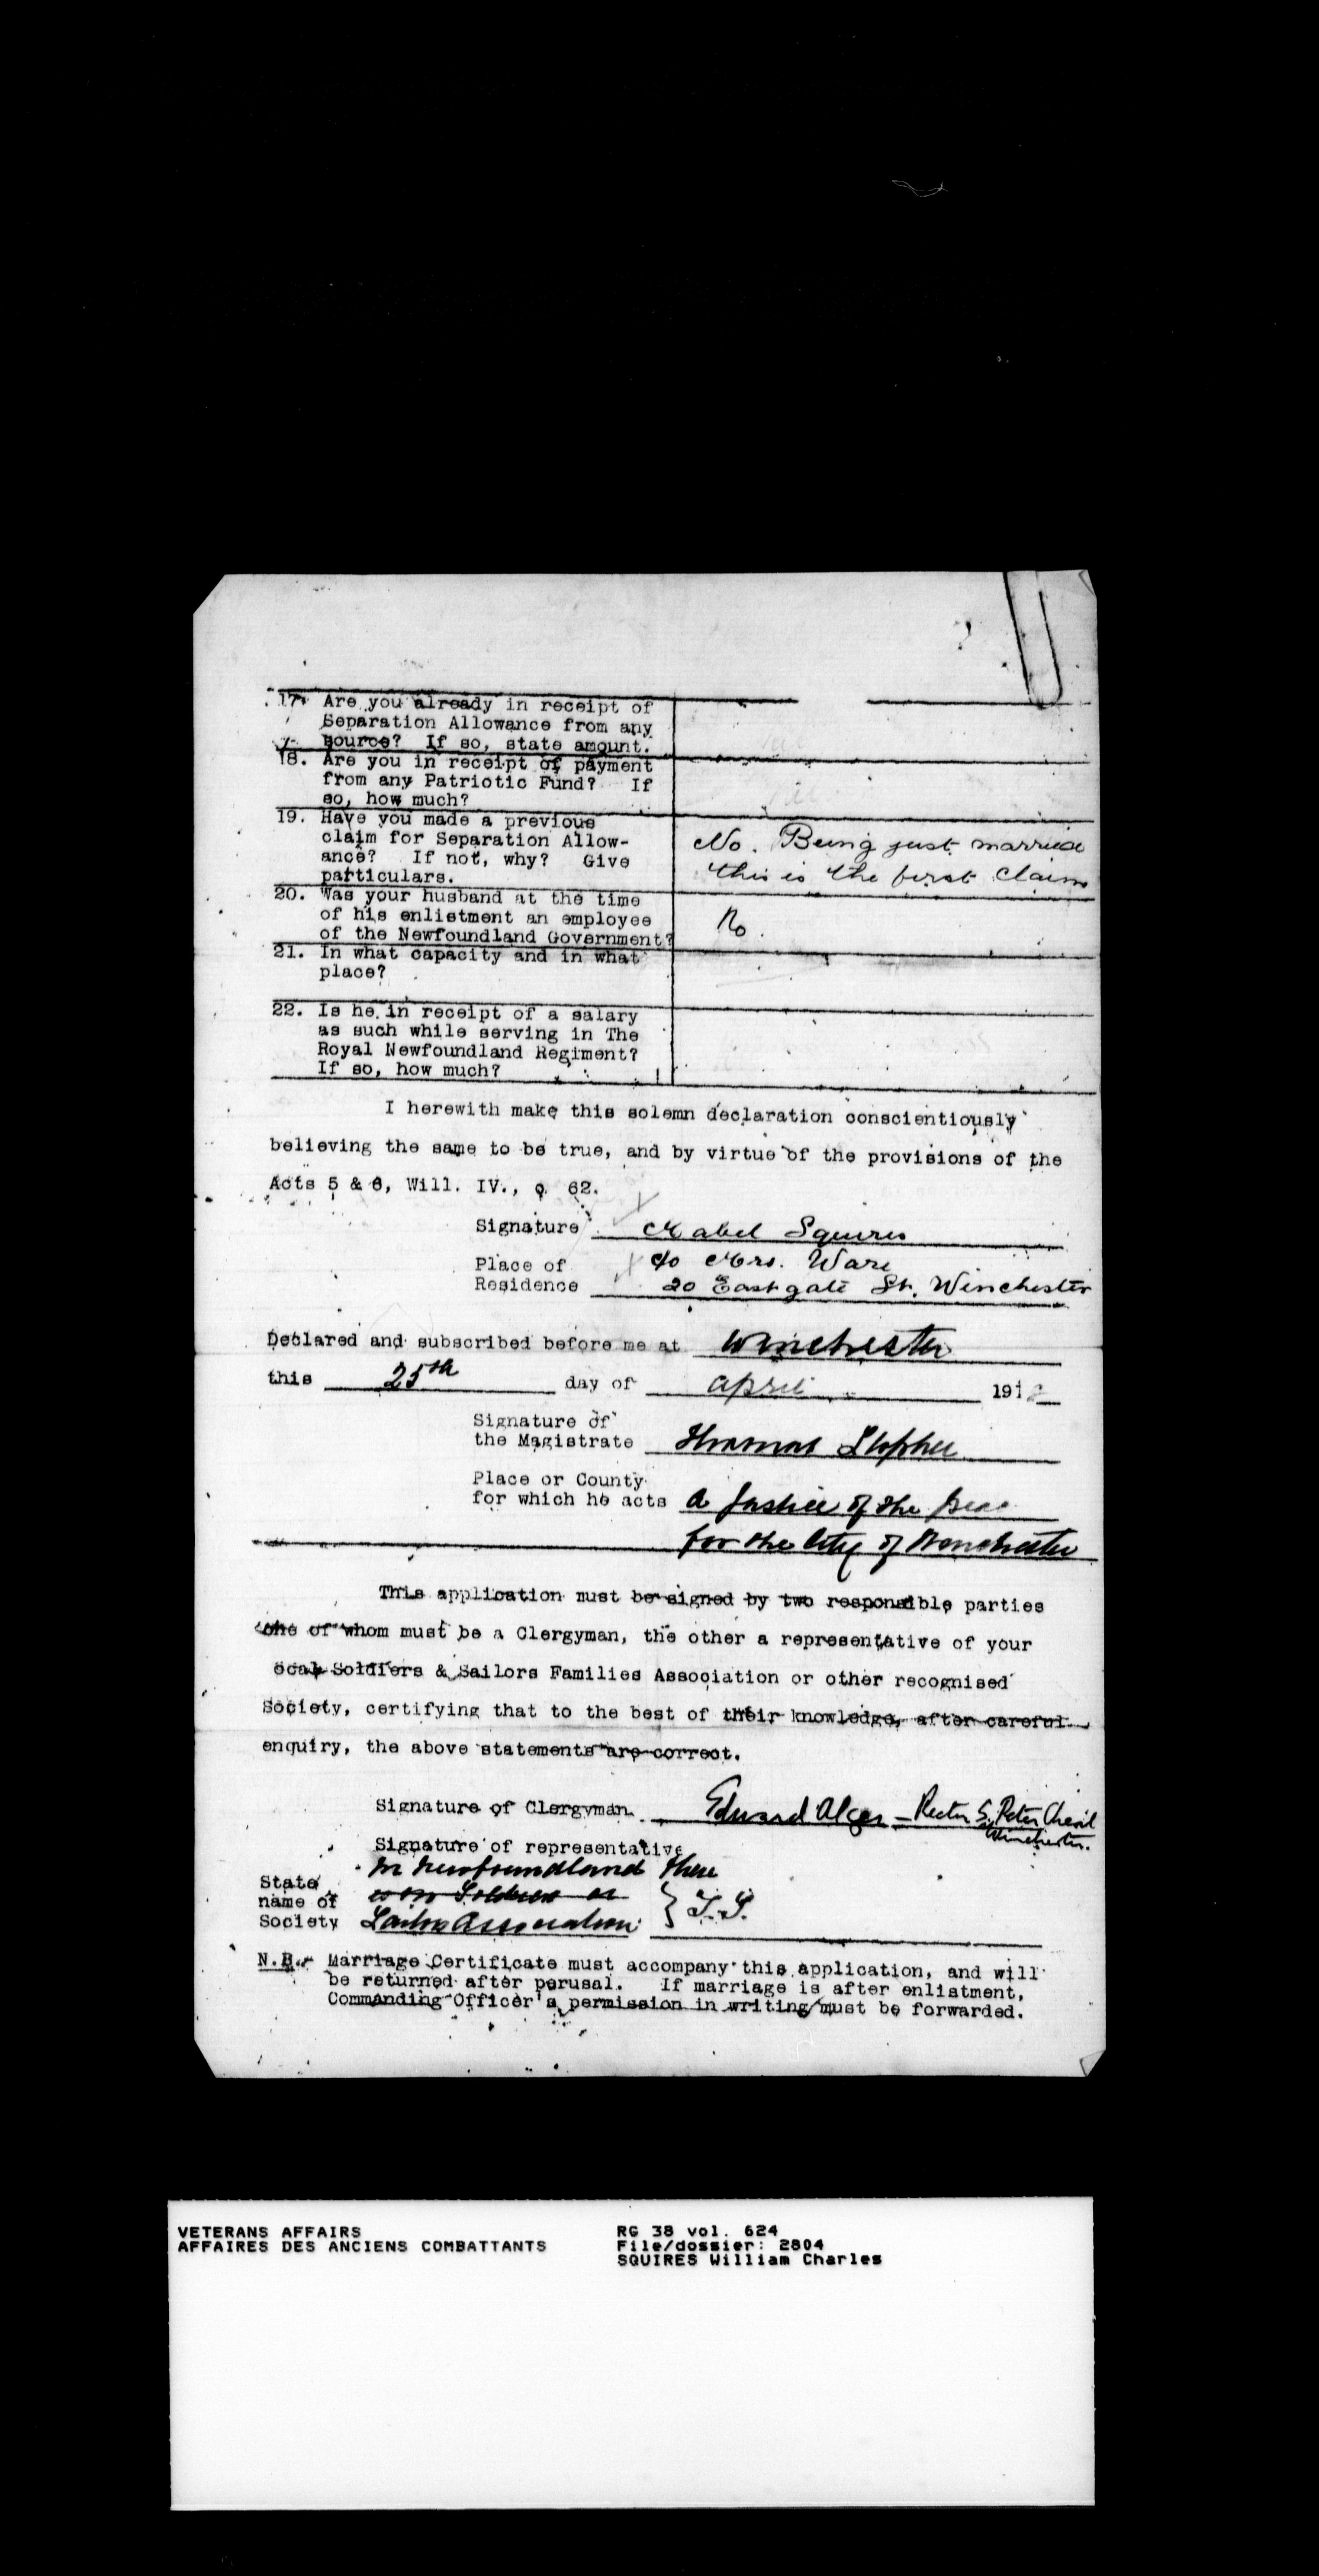 17. Are you already in receipt of
Separation Allowance from any
source? If so, state amount.
18. Are you in receipt of payment
from any Patriotic Fund? If
so, how much?
Nil
19. Have you made a previous
claim for Separation Allow-
ance? If not, why? Give
particulars.
No. Being just married
this is the first claim
20. Was your husband at the time
of his enlistment an employee
of the Newfoundland Government?
No.
21. In what capacity and in what
place?
22. Is he in receipt of a salary
as such while serving in The
Royal Newfoundland Regiment?
If so, how much?
I herewith make this solemn declaration conscientiously
believing the same to be true, and by virtue of the provisions of the
Acts 5 & 6, Will. IV., c. 62.
Signature Mabel Squires
Place of c/o Mrs. Ware
Residence 20 Eastgate St. Winchester
Declared and subscribed before me at Winchester
this 25th day of April 191
Signature of
the Magistrate Thomas Stopher
Place or County
for which he acts a Justice of the Peace
for the City of Winchester
This application must be signed by two responsible parties
one of whom must be a Clergyman, the other a representative of your
ocal Soldiers & Sailors Families Association or other recognised
Society, certifying that to the best of their knowledge, after careful
enquiry, the above statements are correct.
Signature of Clergyman. Edward Alger - Rector S. Peter Chesil
Winchester.
Signature of representative
In Newfoundland there
State
name of is no Soldiers or } T.S.
Society Sailors Association
N.B. Marriage Certificate must accompany this application, and will
be returned after perusal. If marriage is after enlistment,
Commanding Officer's permission in writing must be forwarded.
VETERANS AFFAIRS
AFFAIRES DES ANCIENS COMBATTANTS
RG 38 vol. 624
File/dossier: 2804
SQUIRES William Charles